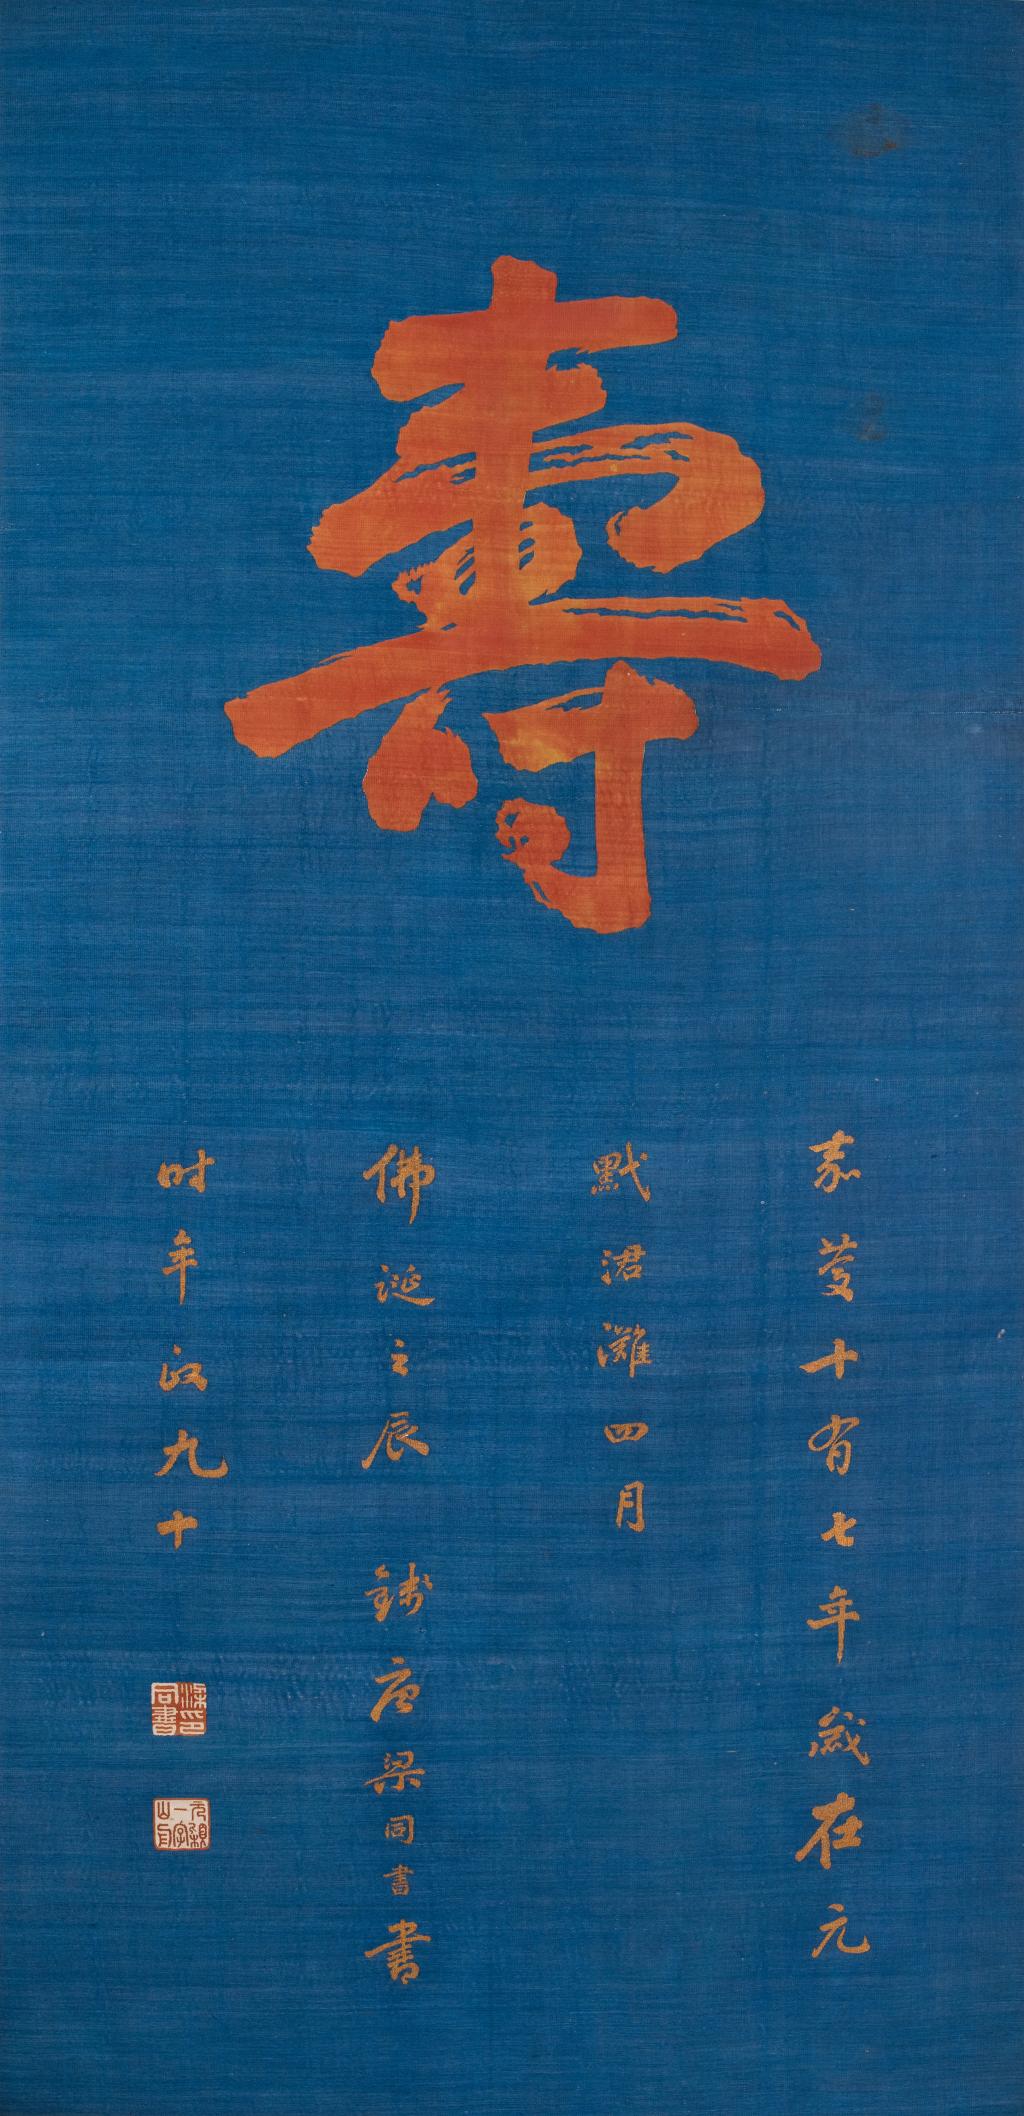 壽
嘉慶十有七年歲在元
黓涒灘四月
佛誕之辰 錢唐梁同書書
时年政九十
梁印同書
元穎一字山舟